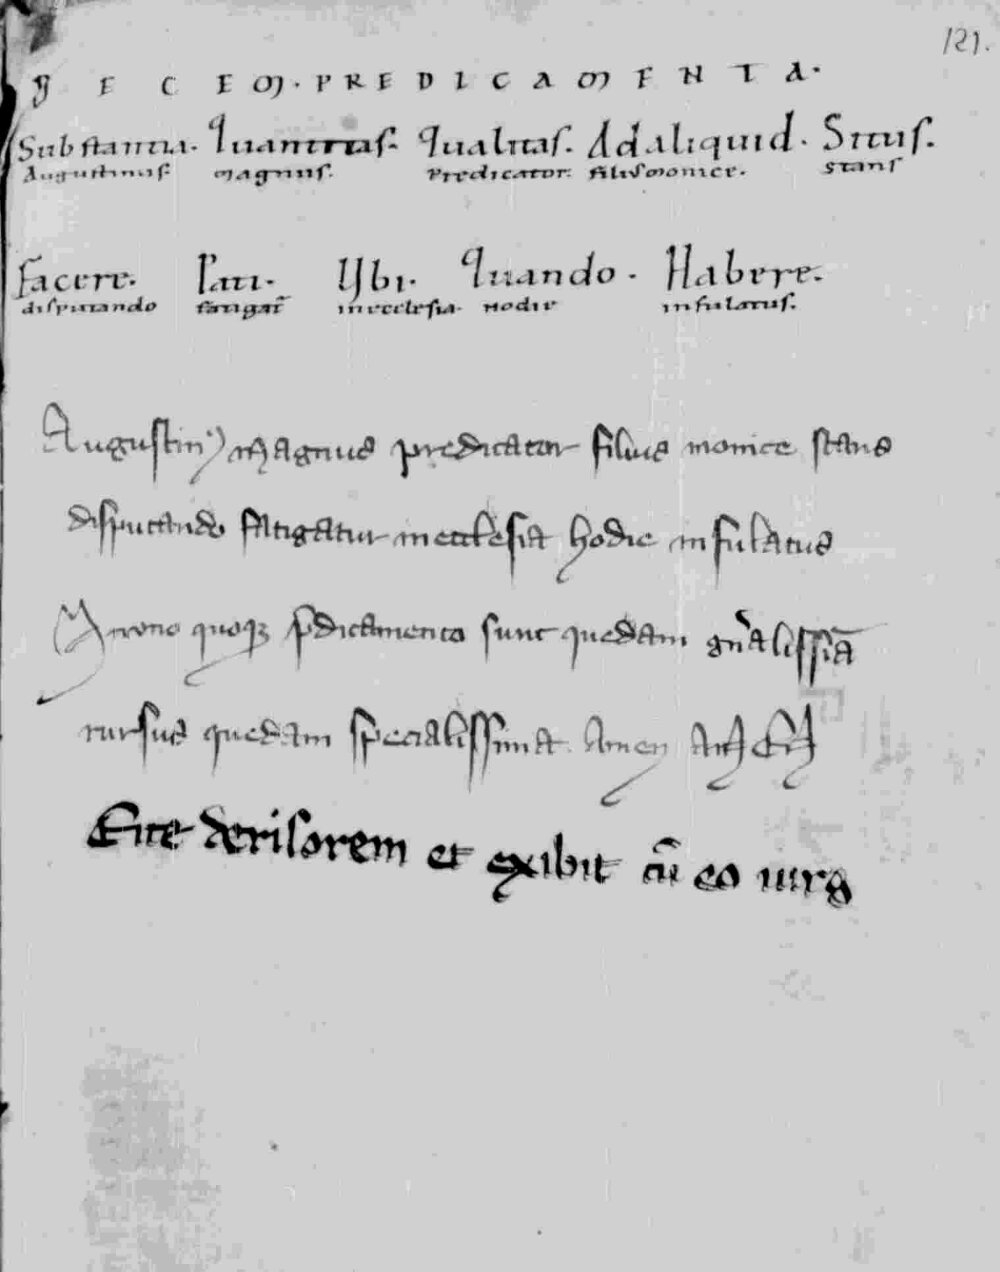 121.
DECEM. PREDICAMENTA.
Substantia. Quantitas. Qualitas. Ad aliquid. Situs.
Augustinus. magnus. Predicator. filius monice. stans
Facere. Pati. Ybi. Quando. Habere.
disputando fatigat̄ in ecclesia. hodie infulatus.
Augustin⁹ Magnus predicator filius monice stans
disputando fatigatur in ecclesia hodie infulatus
quoqꝫ p̄dicamenta sunt quedam gn̄alissīa
rursus quedam specialissima Amen
Eice derisorem et exibit cū eo iurg